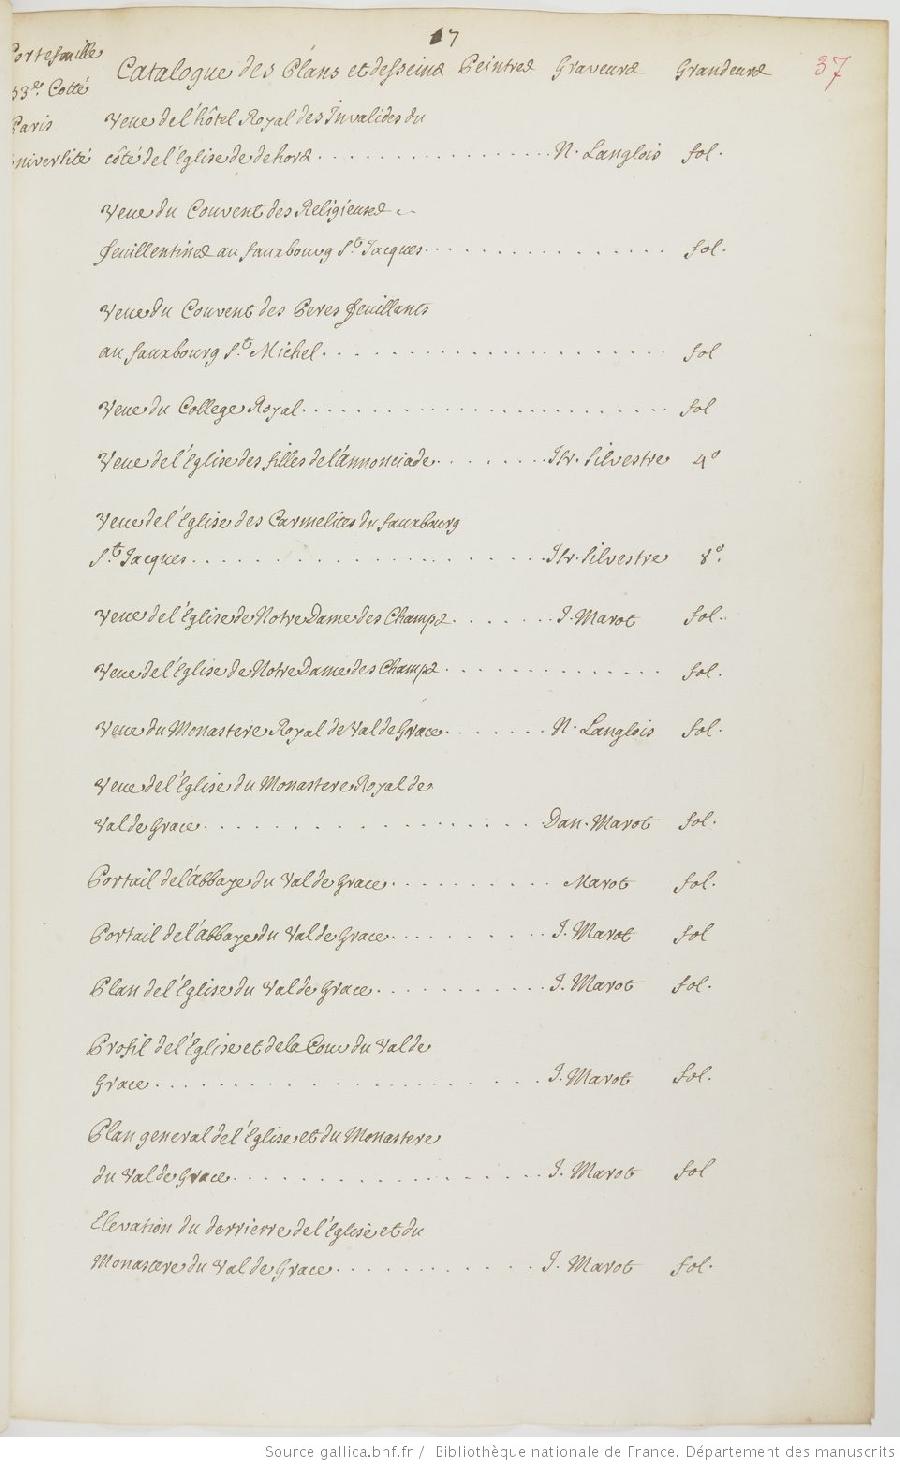 17
37
Portefeuille
53e. Cotté
Paris
université
Catalogue des Plans et desseins Peintres Graveurs Grandeurs
Veue de l'hôtel Royal des Invalides du
côté de l'Eglise de dehors . . . . . . . . . . . . N. Langlois fol.
Veue du Couvent des Religieuses
feuillentines au fauxbourg St. Jacques . . . . . . . . . . . . fol.
Veue du Couvent des Peres feuillants
au fauxbourg St. Michel . . . . . . . . . . . . fol
Veue du College Royal . . . . . . . . . . . . fol
Veue de l'Eglise des filles de l'annonciade . . . . . . Isr. Silvestre 4o
Veue de l'Eglise des Carmelites du fauxbourg
St. Jacques . . . . . . . . . . . . Isr. Silvestre 8o.
Veue de l'Eglise de Notre Dame des Champs . . . . . . J. Marot fol.
Veue de l'Eglise de Notre Dame des Champs . . . . . . . . . . . . fol.
Veue du Monastere Royal de Val de Grace . . . . . . N. Langlois fol.
Veue de l'Eglise du Monastere Royal de
Val de Grace . . . . . . . . . . . . Dan. Marot fol.
Portail de l'abbaye du Val de Grace . . . . . . . . . Marot fol.
Portail de l'Abbaye du Val de Grace . . . . . . . . . J. Marot fol
Plan de l'Eglise du Val de Grace . . . . . . . . . J. Marot fol.
Profil de l'Eglise et de la Cour du Val de
Grace . . . . . . . . . . . . J. Marot fol.
Plan general de l'Eglise et du Monastere
du Val de Grace . . . . . . . . . . . . J. Marot fol
Elevation du derriere de l'Eglise et du
Monastere du Val de Grace . . . . . . . . . J. Marot fol.
Source gallica.bnf.fr / Bibliothèque nationale de France. Département des manuscrits